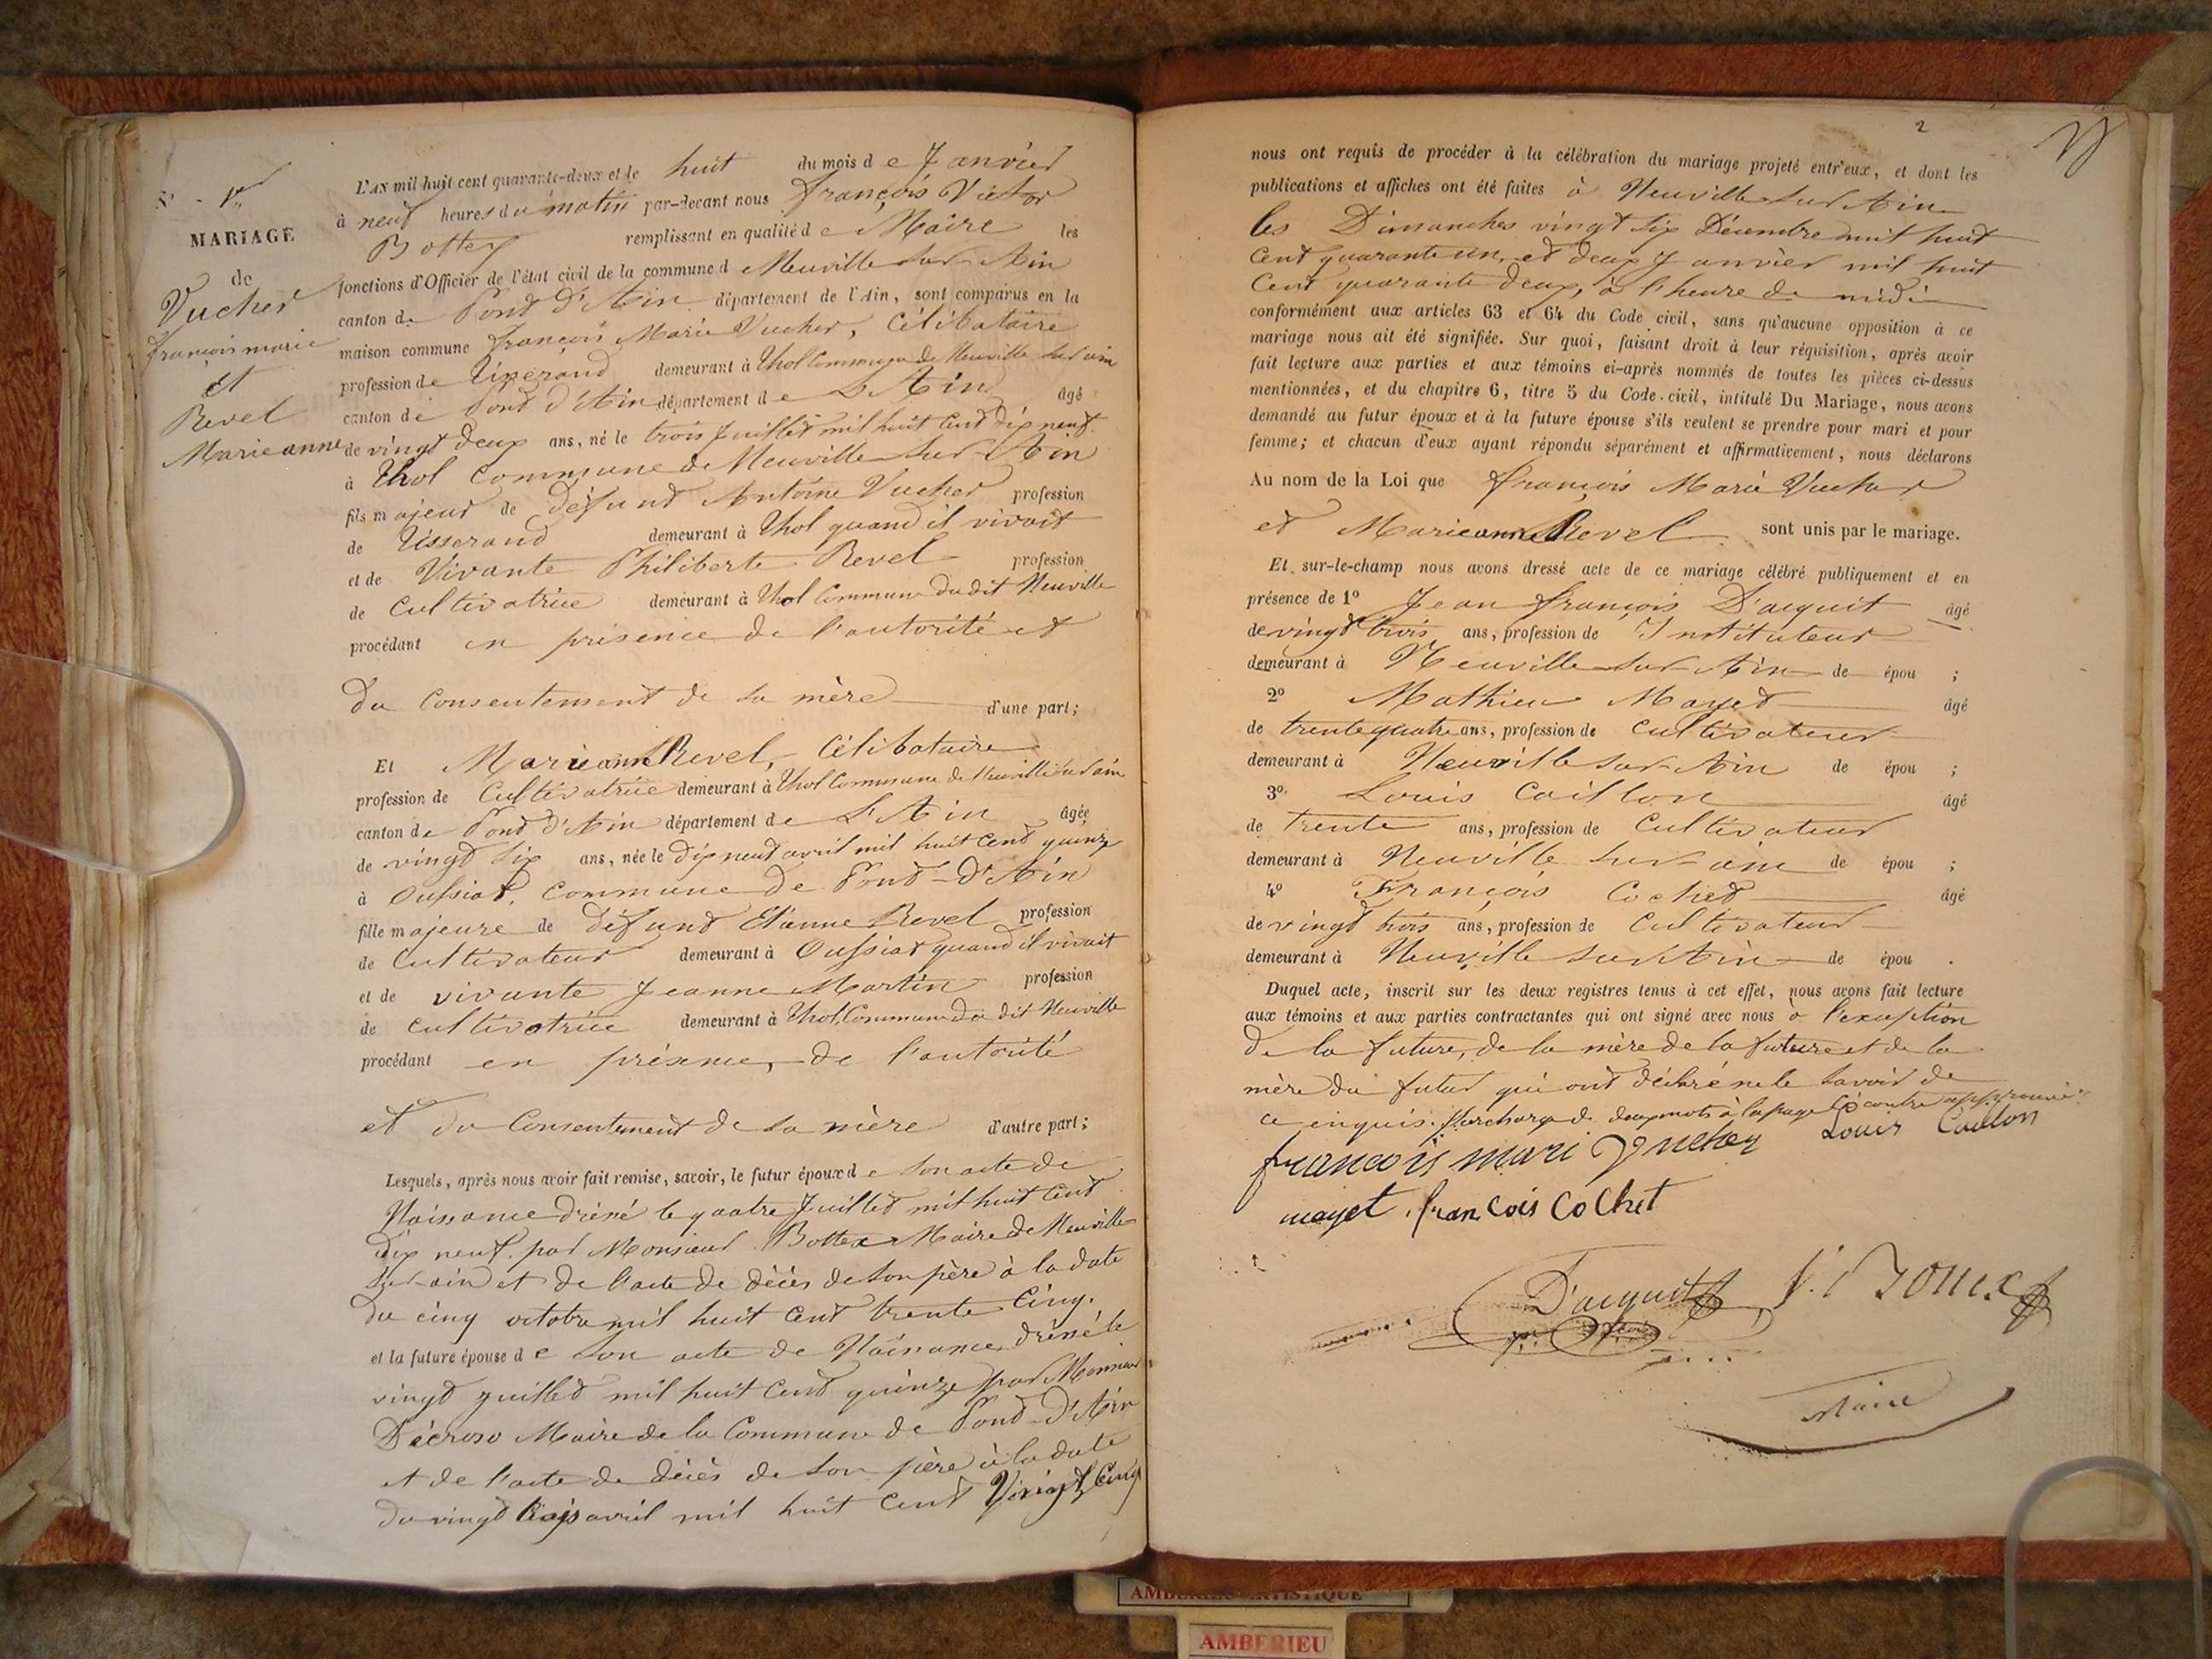 N° - 1er
MARIAGE
de
Vucher
françois marie
et
Revel
Marieanne
L'AN mil huit cent quarante-deux et le huit du mois de Janvier
à neuf heures du matin par-devant nous françois Victor
Bottex remplissant en qualité de Maire les
fonctions d'Officier de l'état civil de la commune d Neuville sur Ain
canton de Pont D'Ain département de l'Ain, sont comparus en la
maison commune françois Marie Vucher, Célibataire
profession de Tisserand demeurant à Thol Commune de Neuville sur ain
canton de Pont d'Ain département de L'Ain âgé
de vingt deux ans, né le trois Juillet mil huit Cent dix neuf
à Thol Commune de Neuville sur Ain
fils majeur de défunt Antoine Vucher profession
de Tisserand demeurant à Thol quand il vivait
et de Vivante Philiberte Revel profession
de Cultivatrice demeurant à Thol Commune du dit Neuville
procédant en présence de l'autorité et
du Consentement de sa mère d'une part;
Et Marieanne Revel, Célibataire
profession de Cultivatrice demeurant à Thol Commune de Neuville sur ain
canton de Pont D'Ain département de L'Ain âgée
de vingt six ans, née le dix neuf avril mil huit Cent quinze
à Oussiat, Commune de Pont-D'Ain
fille majeure de défunt Etienne Revel profession
de Cultivateur demeurant à Oussiat quand il vivait
et de vivante Jeanne Martin profession
de Cultivatrice demeurant à Thol, Commune du dit Neuville
procédant en présence, de l'autorité
et du Consentement de sa mère d'autre part;
Lesquels, après nous avoir fait remise, savoir, le futur époux de son acte de
Naissance dréssé le quatre Juillet mil huit Cent
dix neuf. par Monsieur Bottex Maire de Neuville
sur ain et de l'acte de décès de son père à la date
du cinq octobre mil huit Cent trente Cinq.
et la future épouse de son acte de Naissance dréssé le
vingt juillet mil huit Cent quinze par Monsieur
Décroso Maire de la Commune de Pont-D'Ain
et de l'acte de décès de son père à la date
du vingt trois avril mil huit Cent Vingt Cinq
2
nous ont requis de procéder à la célébration du mariage projeté entr'eux, et dont les
publications et affiches ont été faites à Neuville sur Ain
les Dimanches vingt six Décembre mil huit
Cent quarante un, et deux Janvier mil huit
Cent quarante deux, à l'heure de midi
conformément aux articles 63 et 64 du Code civil, sans qu'aucune opposition à ce
mariage nous ait été signifiée. Sur quoi, faisant droit à leur réquisition, après avoir
fait lecture aux parties et aux témoins ci-après nommés de toutes les pièces ci-dessus
mentionnées, et du chapitre 6, titre 5 du Code civil, intitulé Du Mariage, nous avons
demandé au futur époux et à la future épouse s'ils veulent se prendre pour mari et pour
femme; et chacun d'eux ayant répondu séparément et affirmativement, nous déclarons
Au nom de la Loi que françois Marie Vucher
et Marieanne Revel sont unis par le mariage.
Et sur-le-champ nous avons dressé acte de ce mariage célébré publiquement et en
présence de 1° Jean françois D'acquit âgé
de vingt trois ans, profession de Instituteur
demeurant à Neuville sur Ain de épou ;
2° Mathieu Mayet âgé
de trente quatre ans, profession de Cultivateur
demeurant à Neuville sur Ain de épou ;
3° Louis Caillon âgé
de trente ans, profession de Cultivateur
demeurant à Neuville sur ain de épou ;
4° François Cochet âgé
de vingt trois ans, profession de Cultivateur
demeurant à Neuville sur Ain de épou .
Duquel acte, inscrit sur les deux registres tenus à cet effet, nous avons fait lecture
aux témoins et aux parties contractantes qui ont signé avec nous à l'exception
de la future, de la mère de la future et de la
mère du futur qui ont déclaré ne le savoir de
ce enquis. surcharge de deux mots à la page ci contre approuvée
francois mari Vucher Louis Caillon
mayet . francois Cochet
D'acquit
Maire
AMBERIEU ARTISTIQUE
AMBERIEU